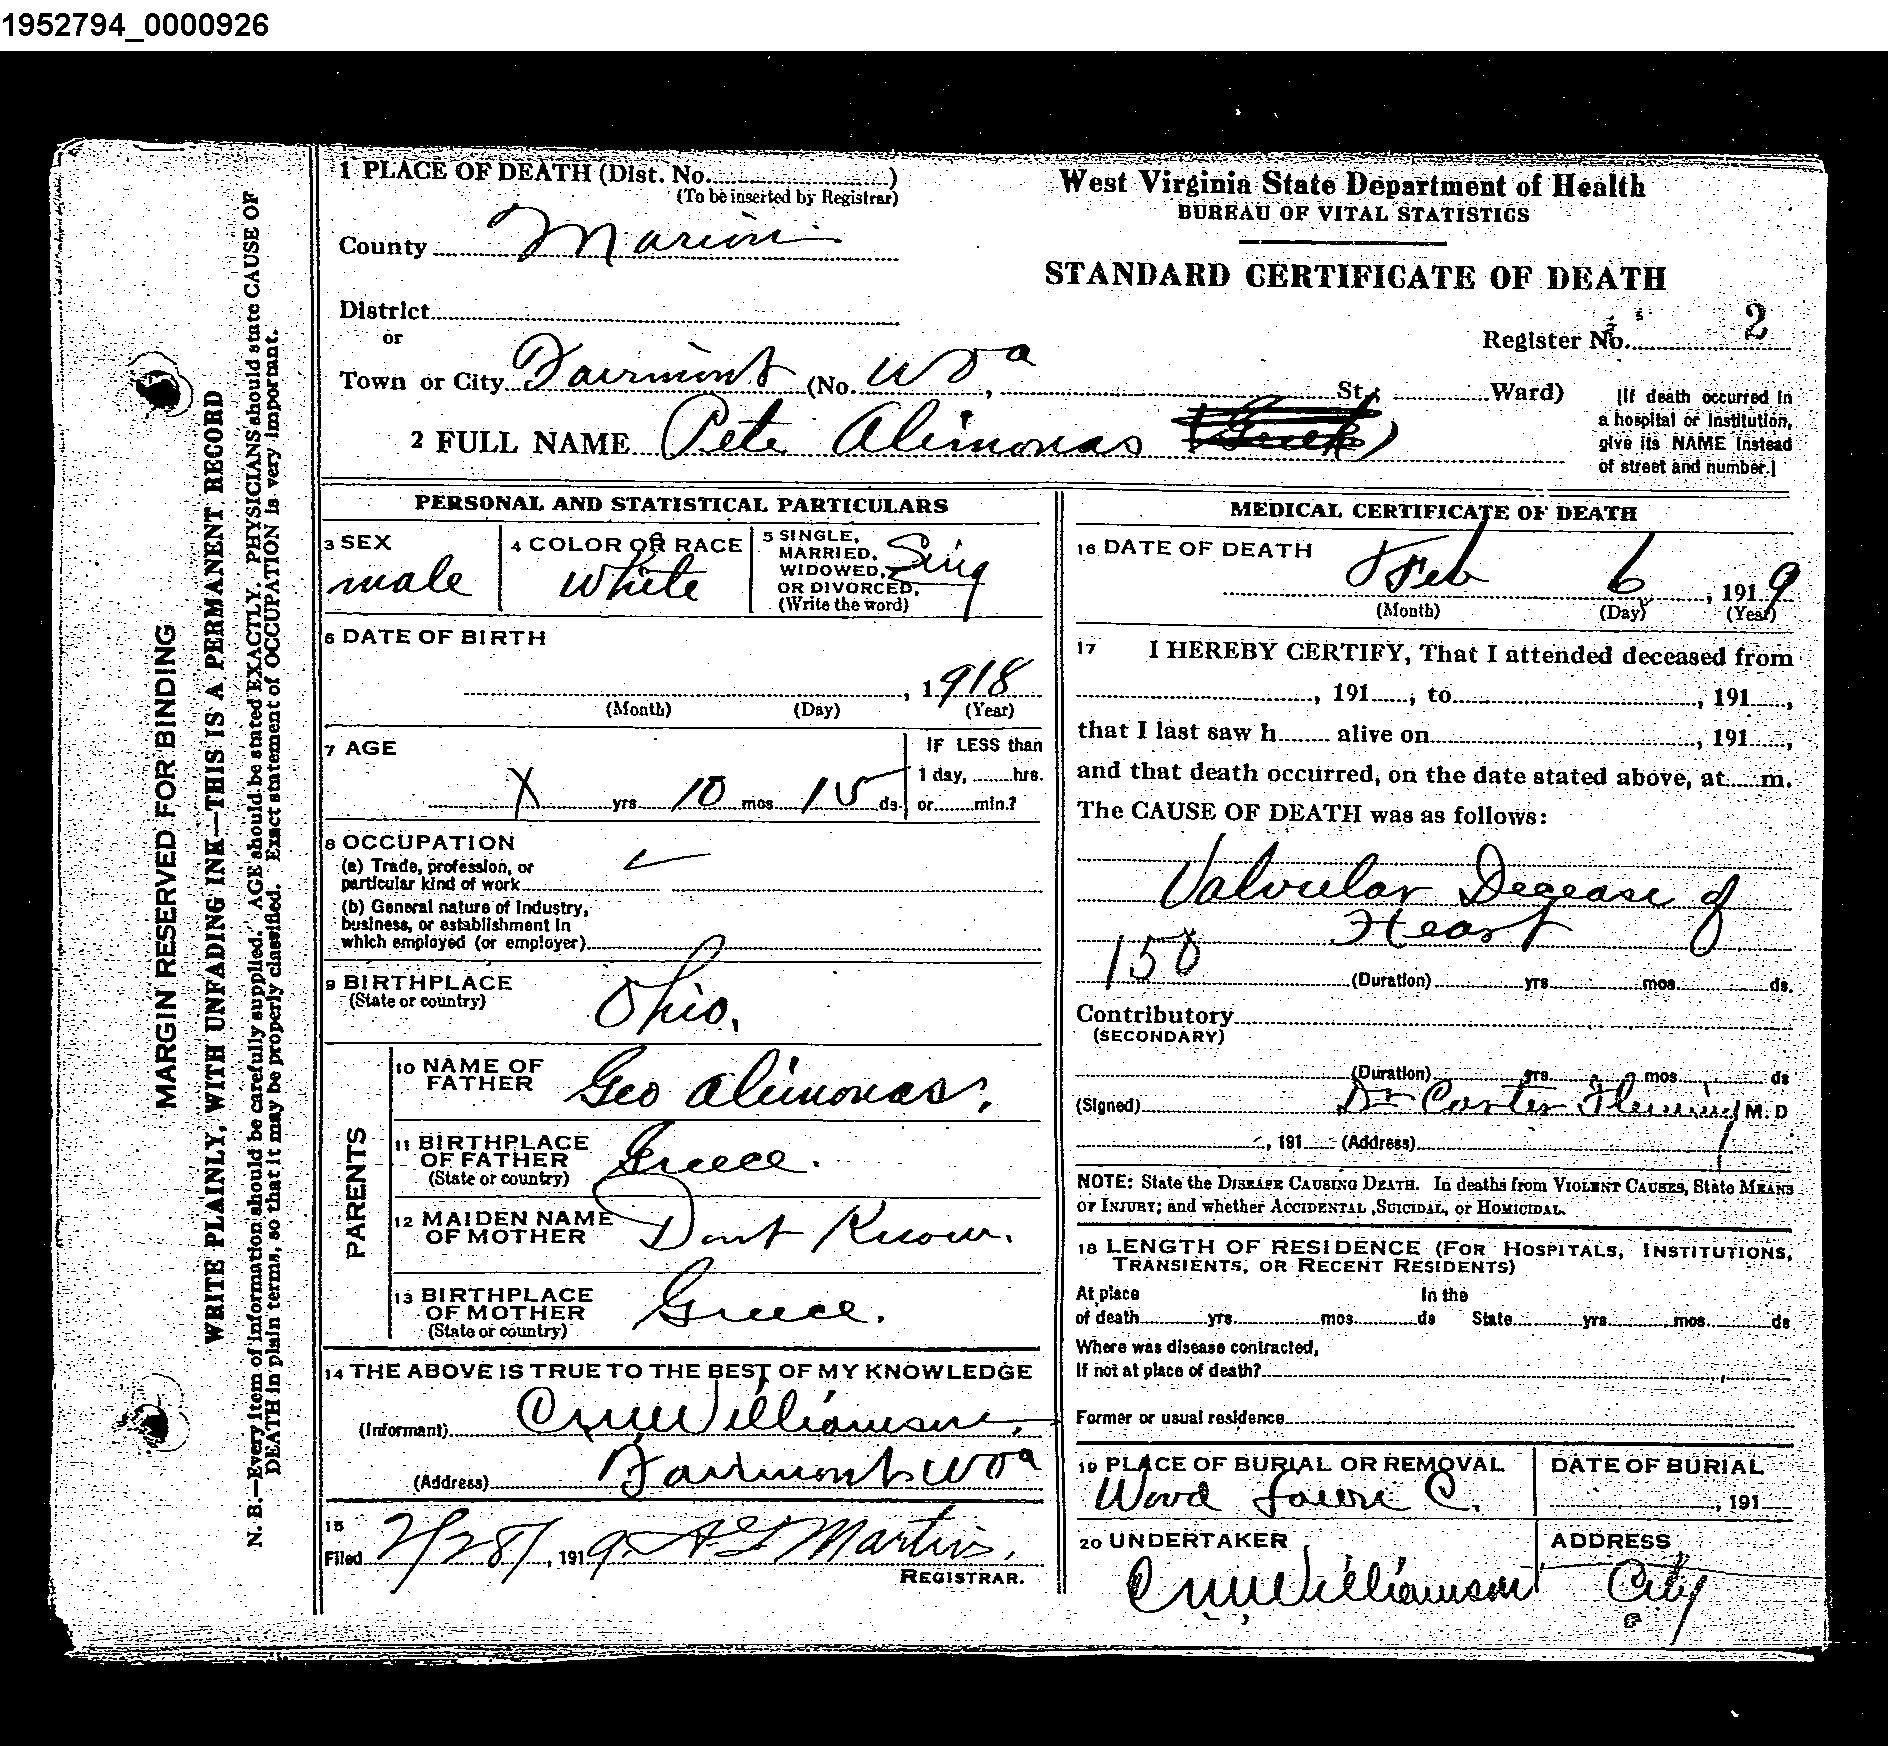 1952794_0000926
MARGIN RESERVED FOR BINDING
WRITE PLAINLY, WITH UNFADING INK—THIS IS A PERMANENT RECORD
N. B.—Every item of information should be carefully supplied. AGE should be stated EXACTLY. PHYSICIANS should state CAUSE OF
DEATH in plain terms, so that it may be properly classified. Exact statement of OCCUPATION is very important.
1 PLACE OF DEATH (Dist. No. )
(To be inserted by Registrar)
County Marion
District
or
Town or City Fairmont (No. W Va, St.; Ward)
West Virginia State Department of Health
BUREAU OF VITAL STATISTICS
STANDARD CERTIFICATE OF DEATH
Register No. 2
[If death occurred in
a hospital or institution,
give its NAME instead
of street and number.]
2 FULL NAME Pete Alimonas (Greek)
PERSONAL AND STATISTICAL PARTICULARS
3 SEX
male
4 COLOR OR RACE
White
5 SINGLE,
MARRIED,
WIDOWED,
OR DIVORCED,
(Write the word)
Sing
6 DATE OF BIRTH
, 1918
(Month) (Day) (Year)
7 AGE
X yrs 10 mos 15 ds.
IF LESS than
1 day, hrs.
or min.?
8 OCCUPATION
(a) Trade, profession, or
particular kind of work
(b) General nature of Industry,
business, or establishment in
which employed (or employer)
9 BIRTHPLACE
(State or country)
Ohio.
PARENTS
10 NAME OF
FATHER
Geo Alimonas.
11 BIRTHPLACE
OF FATHER
(State or country)
Greece.
12 MAIDEN NAME
OF MOTHER
Dont Know.
13 BIRTHPLACE
OF MOTHER
(State or country)
Greece.
14 THE ABOVE IS TRUE TO THE BEST OF MY KNOWLEDGE
(Informant) CMWilliamson,
(Address) Fairmont W Va
15
Filed 2/28/, 1919. Martin.
REGISTRAR.
MEDICAL CERTIFICATE OF DEATH
16 DATE OF DEATH
Feb 6, 1919
(Month) (Day) (Year)
17 I HEREBY CERTIFY, That I attended deceased from
, 191 , to , 191 ,
that I last saw h alive on , 191 ,
and that death occurred, on the date stated above, at m.
The CAUSE OF DEATH was as follows:
Valvular Desease of
Heart
150
(Duration) yrs mos ds.
Contributory
(SECONDARY)
(Duration) yrs. mos. ds
(Signed) Dr Carter Fleming M. D
, 191 (Address)
NOTE: State the DISEASE CAUSING DEATH. In deaths from VIOLENT CAUSES, State MEANS
OF INJURY; and whether ACCIDENTAL, SUICIDAL, or HOMICIDAL.
18 LENGTH OF RESIDENCE (FOR HOSPITALS, INSTITUTIONS,
TRANSIENTS, OR RECENT RESIDENTS)
At place In the
of death yrs. mos. ds State yrs. mos. ds
Where was disease contracted,
If not at place of death?
Former or usual residence
19 PLACE OF BURIAL OR REMOVAL
Wood Lawn C.
DATE OF BURIAL
, 191
20 UNDERTAKER
CMWilliamson
ADDRESS
City